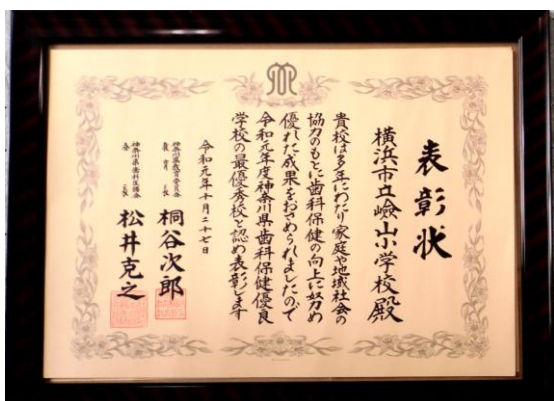 表彰状
横浜市立嶮山小学校殿
貴校は多年にわたり家庭や地域社会の
協力のもとに歯科保健の向上に努め
優れた成果をおさめられましたので
令和元年度神奈川県歯科保健優良
学校の最優秀校と認め表彰します
令和元年十月二十七日
神奈川県教育委員会
教育長 桐谷次郎
神奈川県歯科医師会
会長 松井克之